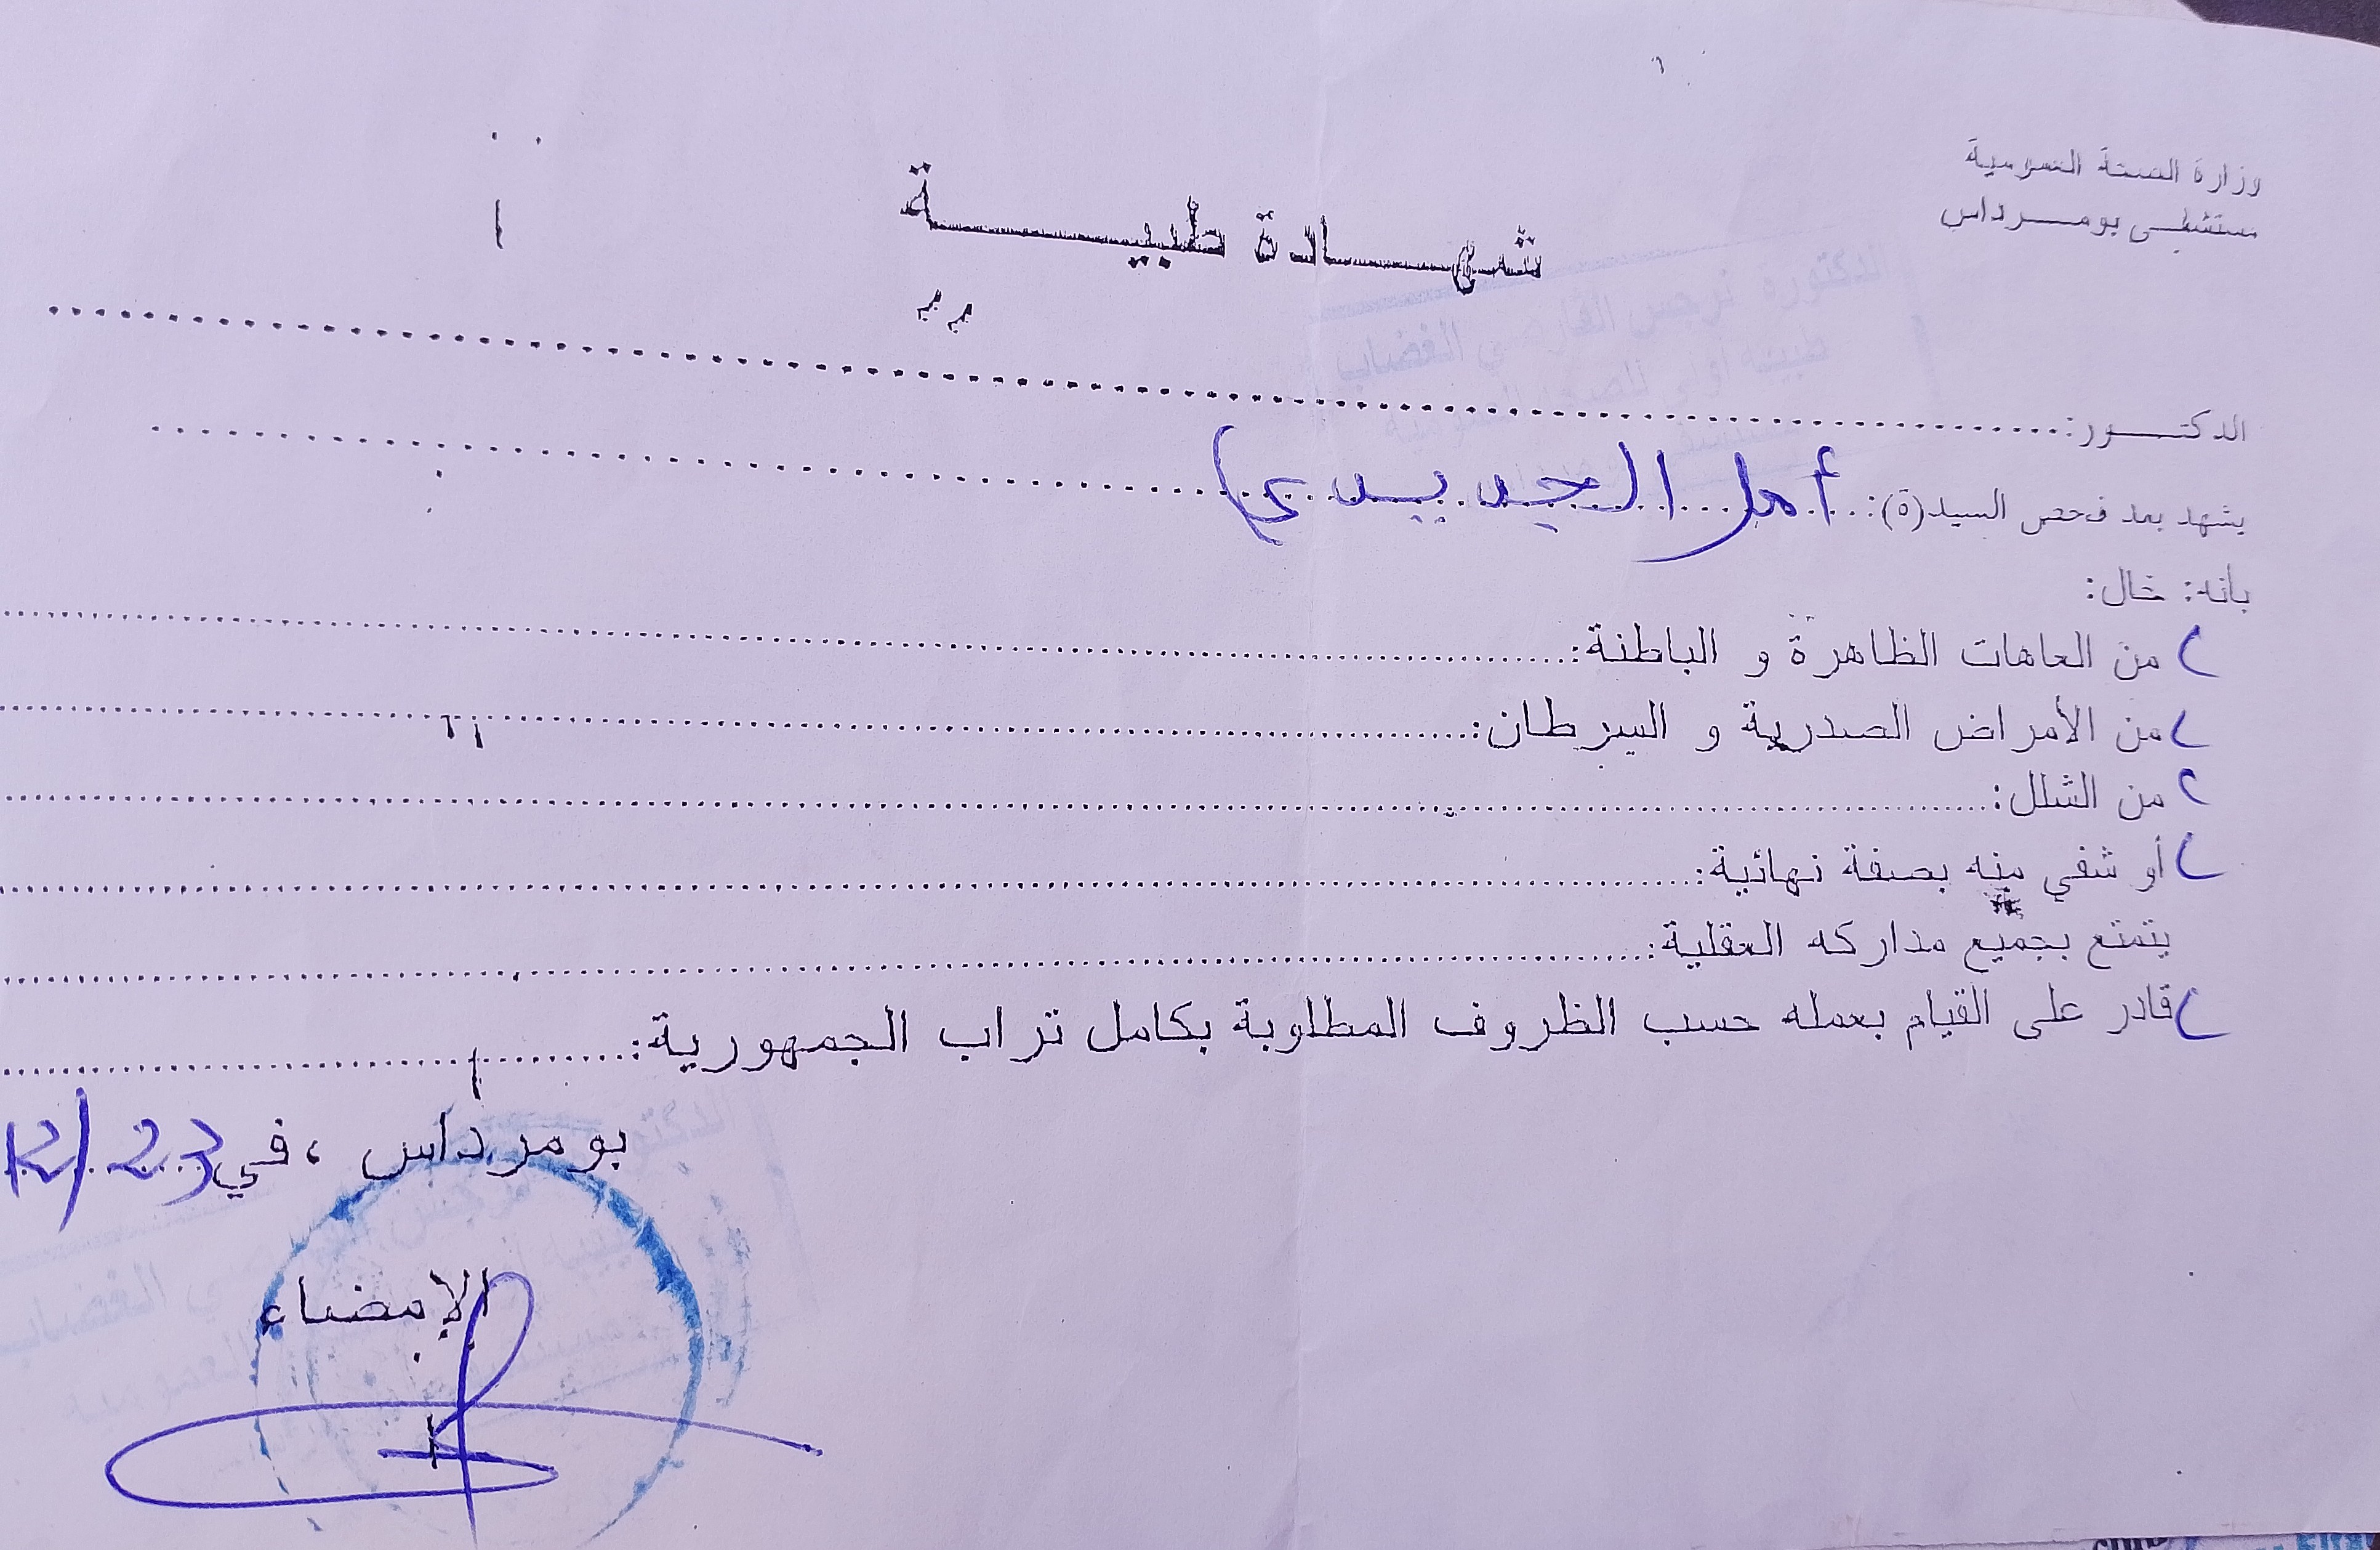 وزارة الصحة العمومية
مستشفى بومرداس
شهادة طبية
الدكتور:
يشهد بعد فحص السيد(ة): أمل الجديدي
بأنه: خال:
من العاهات الظاهرة و الباطنة:
من الأمراض الصدرية و السرطان:
من الشلل:
أو شفي منه بصفة نهائية:
يتمتع بجميع مداركه العقلية:
قادر على القيام بعمله حسب الظروف المطلوبة بكامل تراب الجمهورية:
بومرداس ، في 23/12
الإمضاء